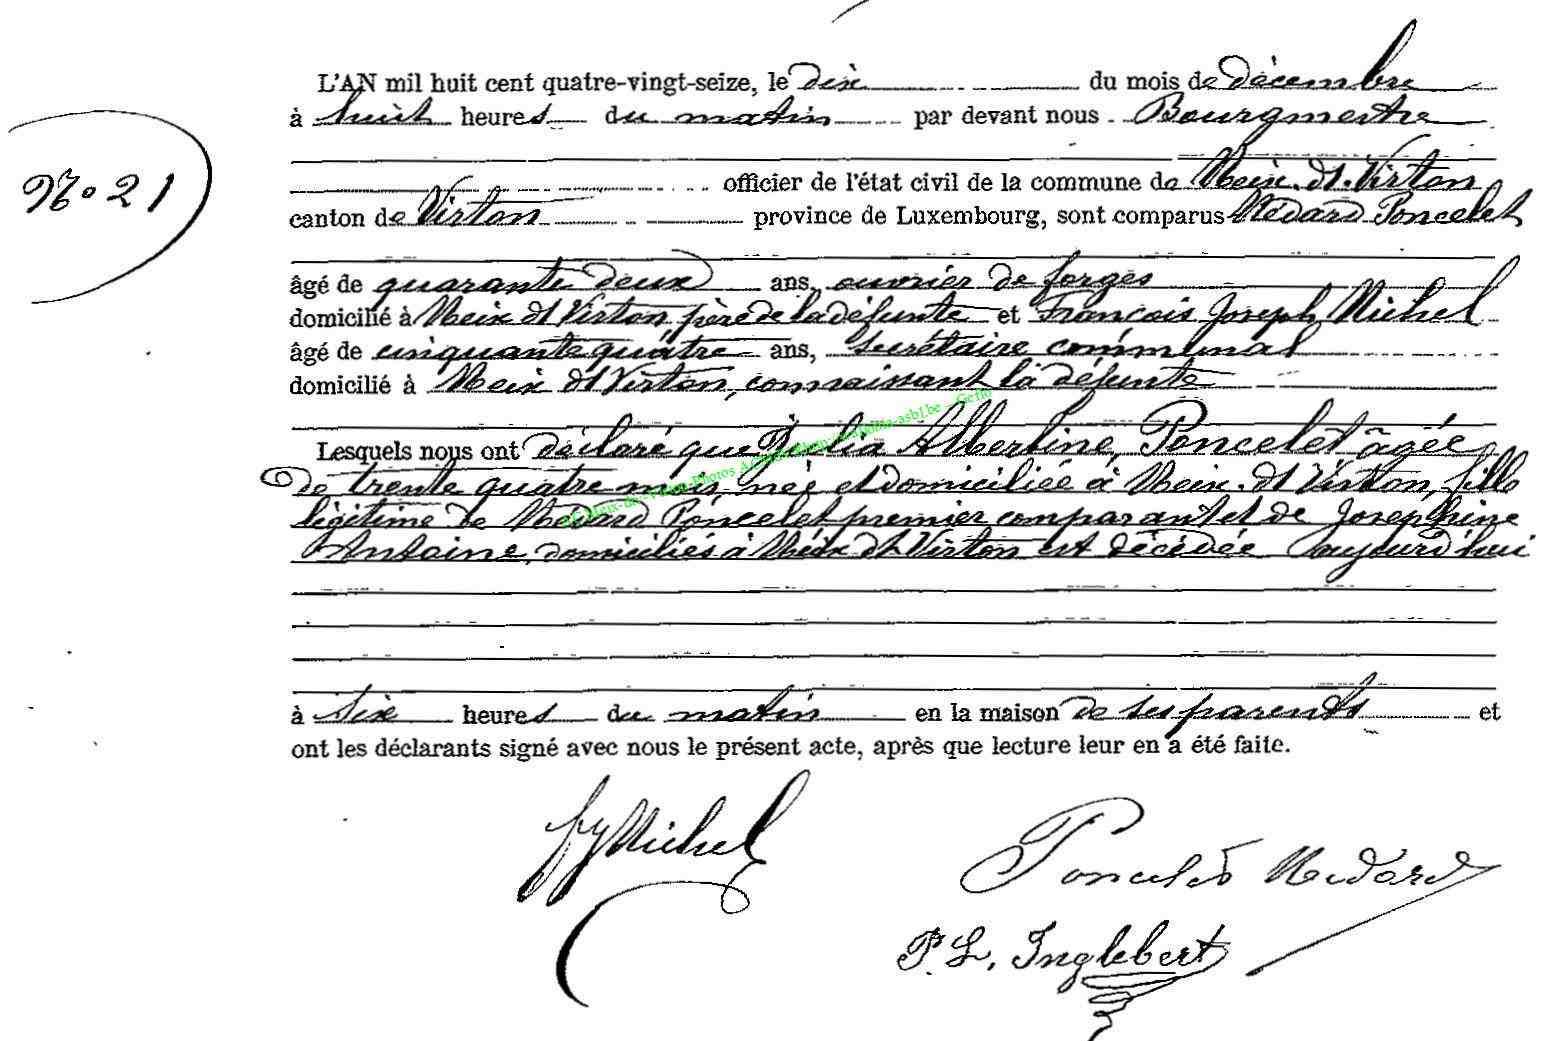 L'AN mil huit cent quatre-vingt-seize, le dix du mois de décembre
à huit heures du matin par devant nous Bourgmestre
officier de l'état civil de la commune de Meix-dt-Virton
N° 21
canton de Virton province de Luxembourg, sont comparus Médard Poncelet
âgé de quarante deux ans, ouvrier de forges
domicilié à Meix dt Virton père de la défunte et François Joseph Michel
âgé de cinquante quatre ans, secrétaire communal
domicilié à Meix dt Virton, connaissant la défunte
Lesquels nous ont déclaré que Albertine, Poncelet âgée
de trente quatre mois, née et domiciliée à Meix-dt Virton, fille
légitime de Médard Poncelet premier comparant et de Josephine
Antoine, domiciliés à Meix dt Virton est décédée aujourd'hui
à six heures du matin en la maison de ses parents et
ont les déclarants signé avec nous le présent acte, après que lecture leur en a été faite.
fj Michel
Poncelet Medard
P. L. Inglebert